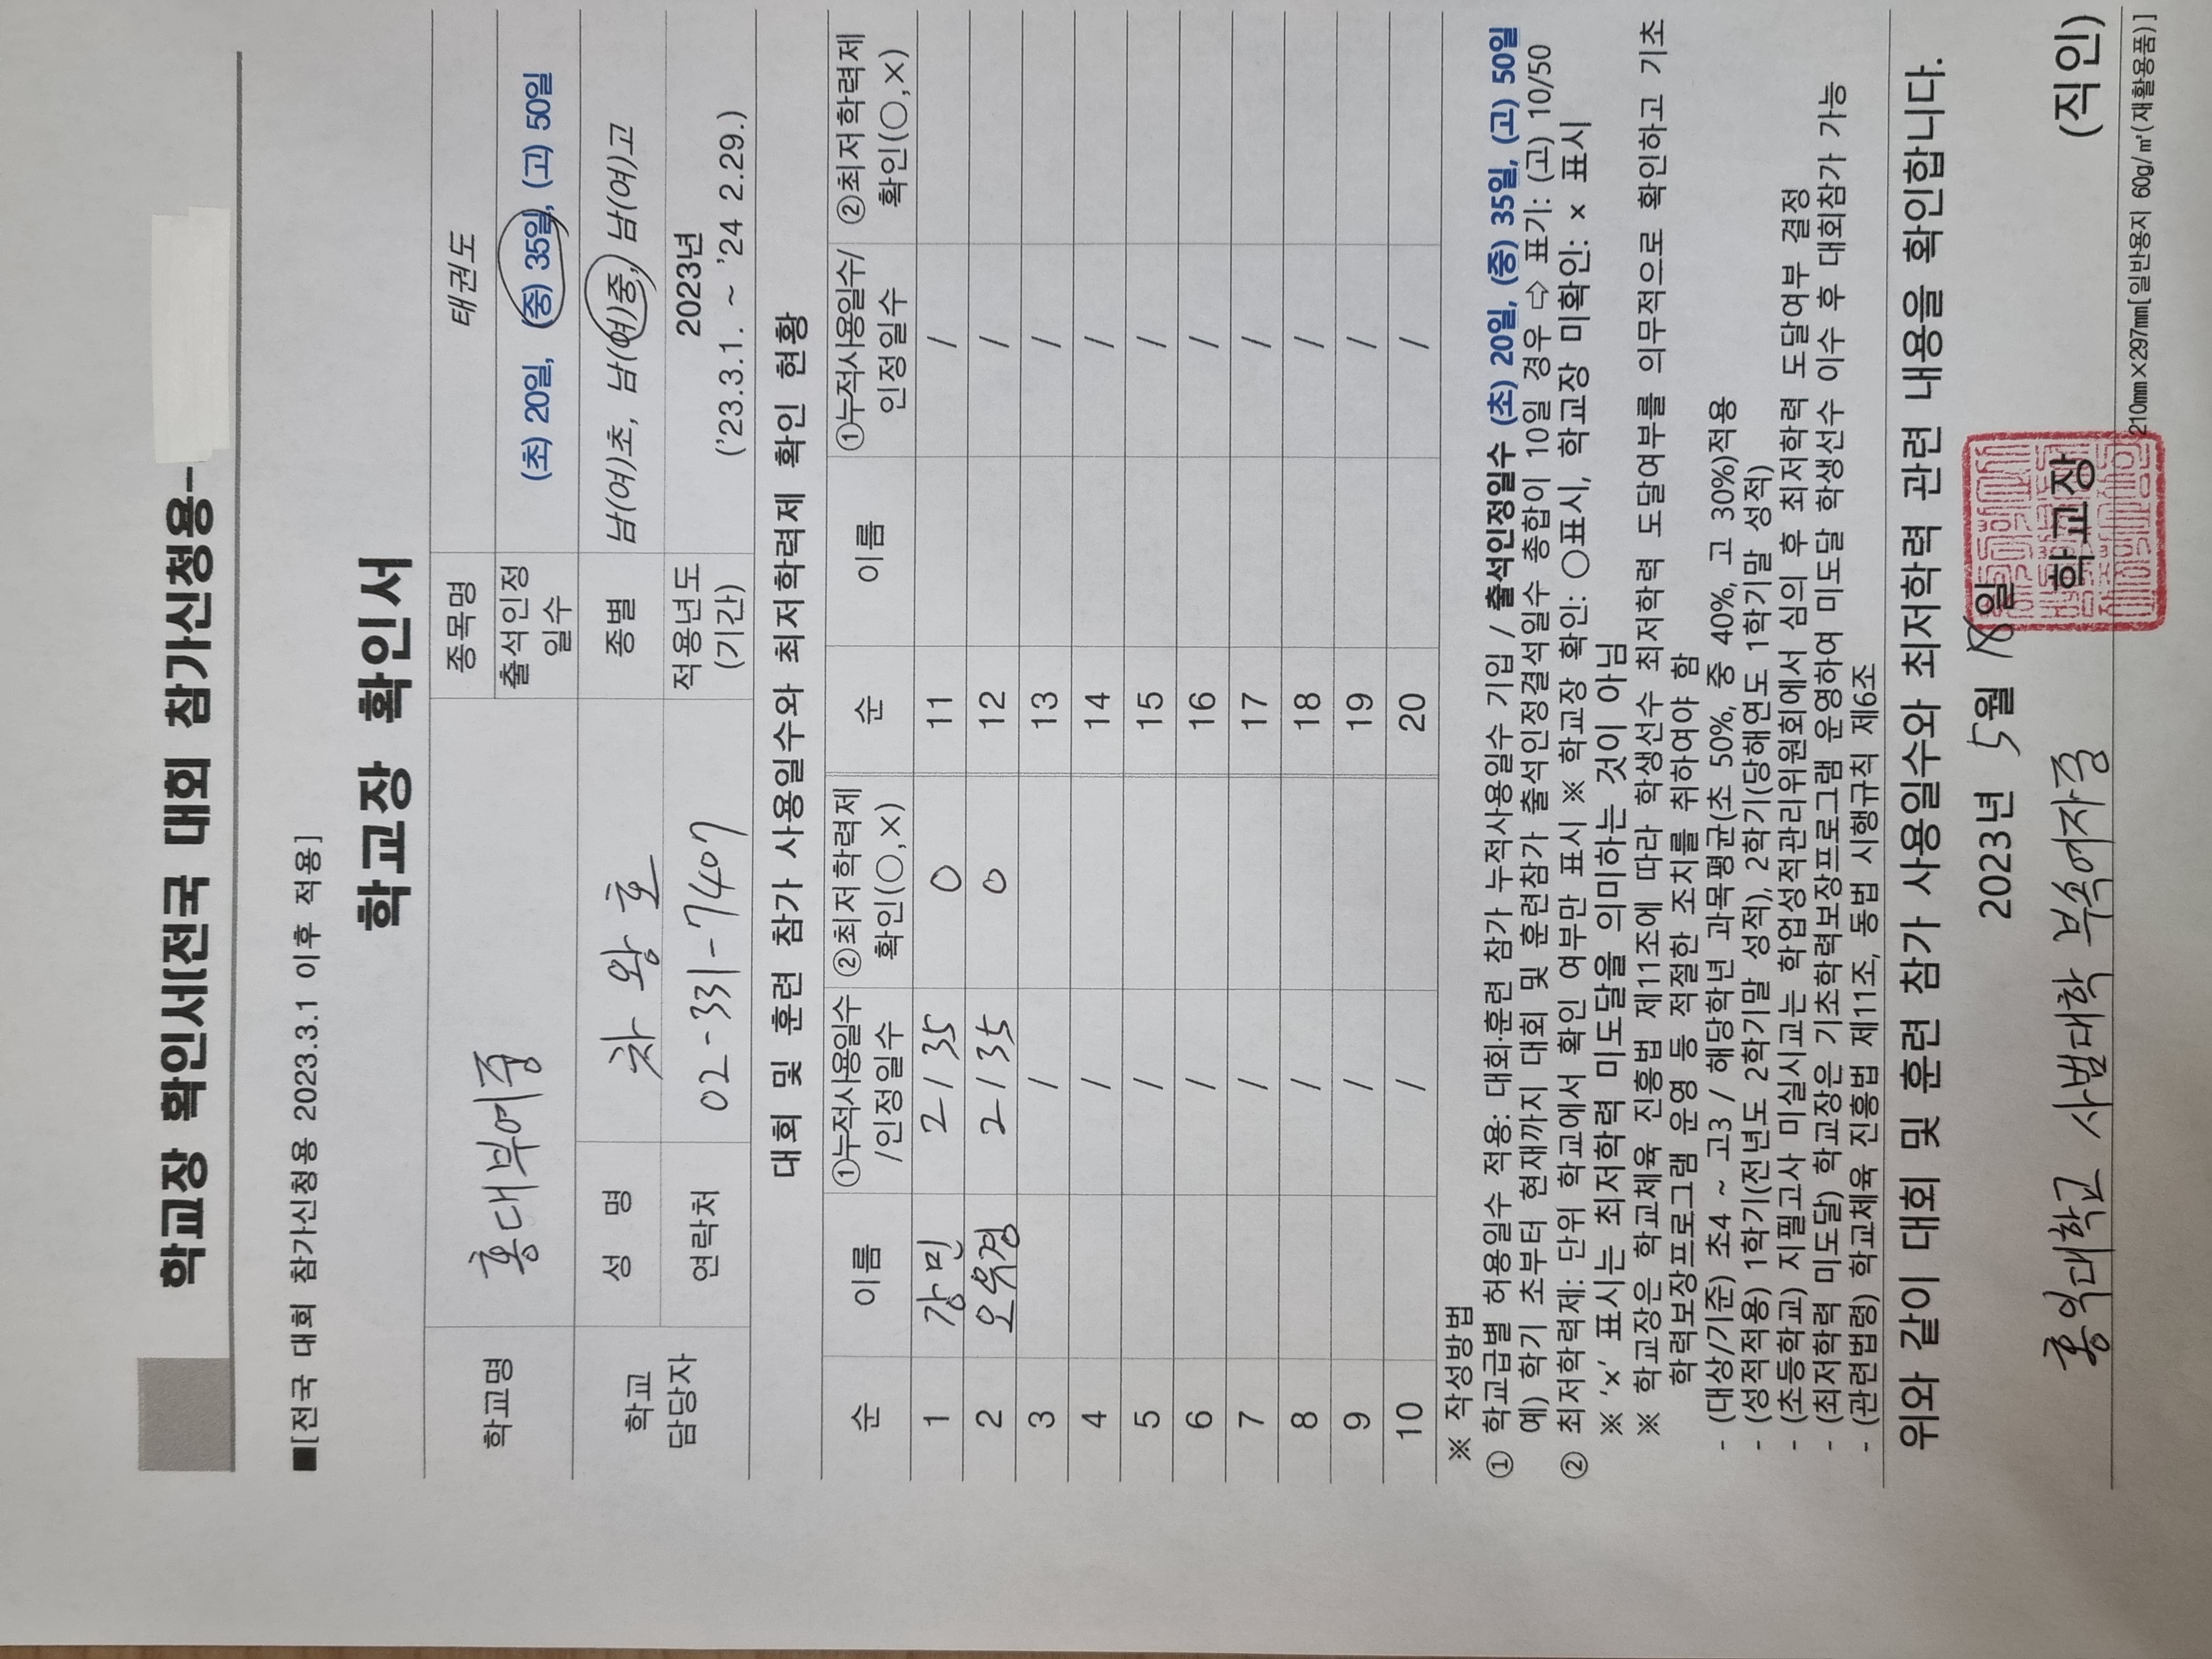 학교장 확인서[전국 대회 참가신청용-
■[전국 대회 참가신청용 2023.3.1 이후 적용]
학교장 확인서
학교명 홍대부여중 종목명 태권도
출석인정 일수 (초) 20일, (중) 35일, (고) 50일
학교 담당자 성 명 차왕호 종별 남(여)초, 남(여)중, 남(여)고
연락처 02-331-7407 적용년도 (기간) 2023년 ('23.3.1. ~ '24 2.29.)
대회 및 훈련 참가 사용일수와 최저학력제 확인 현황
순 이름 ①누적사용일수/인정일수 ②최저학력제 확인(○,×) 순 이름 ①누적사용일수/인정일수 ②최저학력제 확인(○,×)
1 강민 2/35 ○ 11 /
2 오유경 2/35 ○ 12 /
3 / 13 /
4 / 14 /
5 / 15 /
6 / 16 /
7 / 17 /
8 / 18 /
9 / 19 /
10 / 20 /
※ 작성방법
① 학교급별 허용일수 적용: 대회·훈련 참가 누적사용일수 기입 / 출석인정일수 (초) 20일, (중) 35일, (고) 50일
예) 학기 초부터 현재까지 대회 및 훈련참가 출석인정결석일수 총합이 10일 경우 ⇨ 표기: (고) 10/50
② 최저학력제: 단위 학교에서 확인 여부만 표시 ※ 학교장 확인: ○표시, 학교장 미확인: × 표시
※ '×' 표시는 최저학력 미도달을 의미하는 것이 아님
※ 학교장은 학교체육 진흥법 제11조에 따라 학생선수 최저학력 도달여부를 의무적으로 확인하고 기초
학력보장프로그램 운영 등 적절한 조치를 취하여야 함
- (대상/기준) 초4 ~ 고3 / 해당학년 과목평균(초 50%, 중 40%, 고 30%)적용
- (성적적용) 1학기(전년도 2학기말 성적), 2학기(당해연도 1학기말 성적)
- (초등학교) 지필고사 미실시교는 학업성적관리위원회에서 심의 후 최저학력 도달여부 결정
- (최저학력 미도달) 학교장은 기초학력보장프로그램 운영하여 미도달 학생선수 이수 후 대회참가 가능
- (관련법령) 학교체육 진흥법 제11조, 동법 시행규칙 제6조
위와 같이 대회 및 훈련 참가 사용일수와 최저학력 관련 내용을 확인합니다.
2023년 5월 일
홍익대학교 사범대학 부속여자중 학교장 (직인)
210㎜×297㎜[일반용지 60g/㎡(재활용품)]